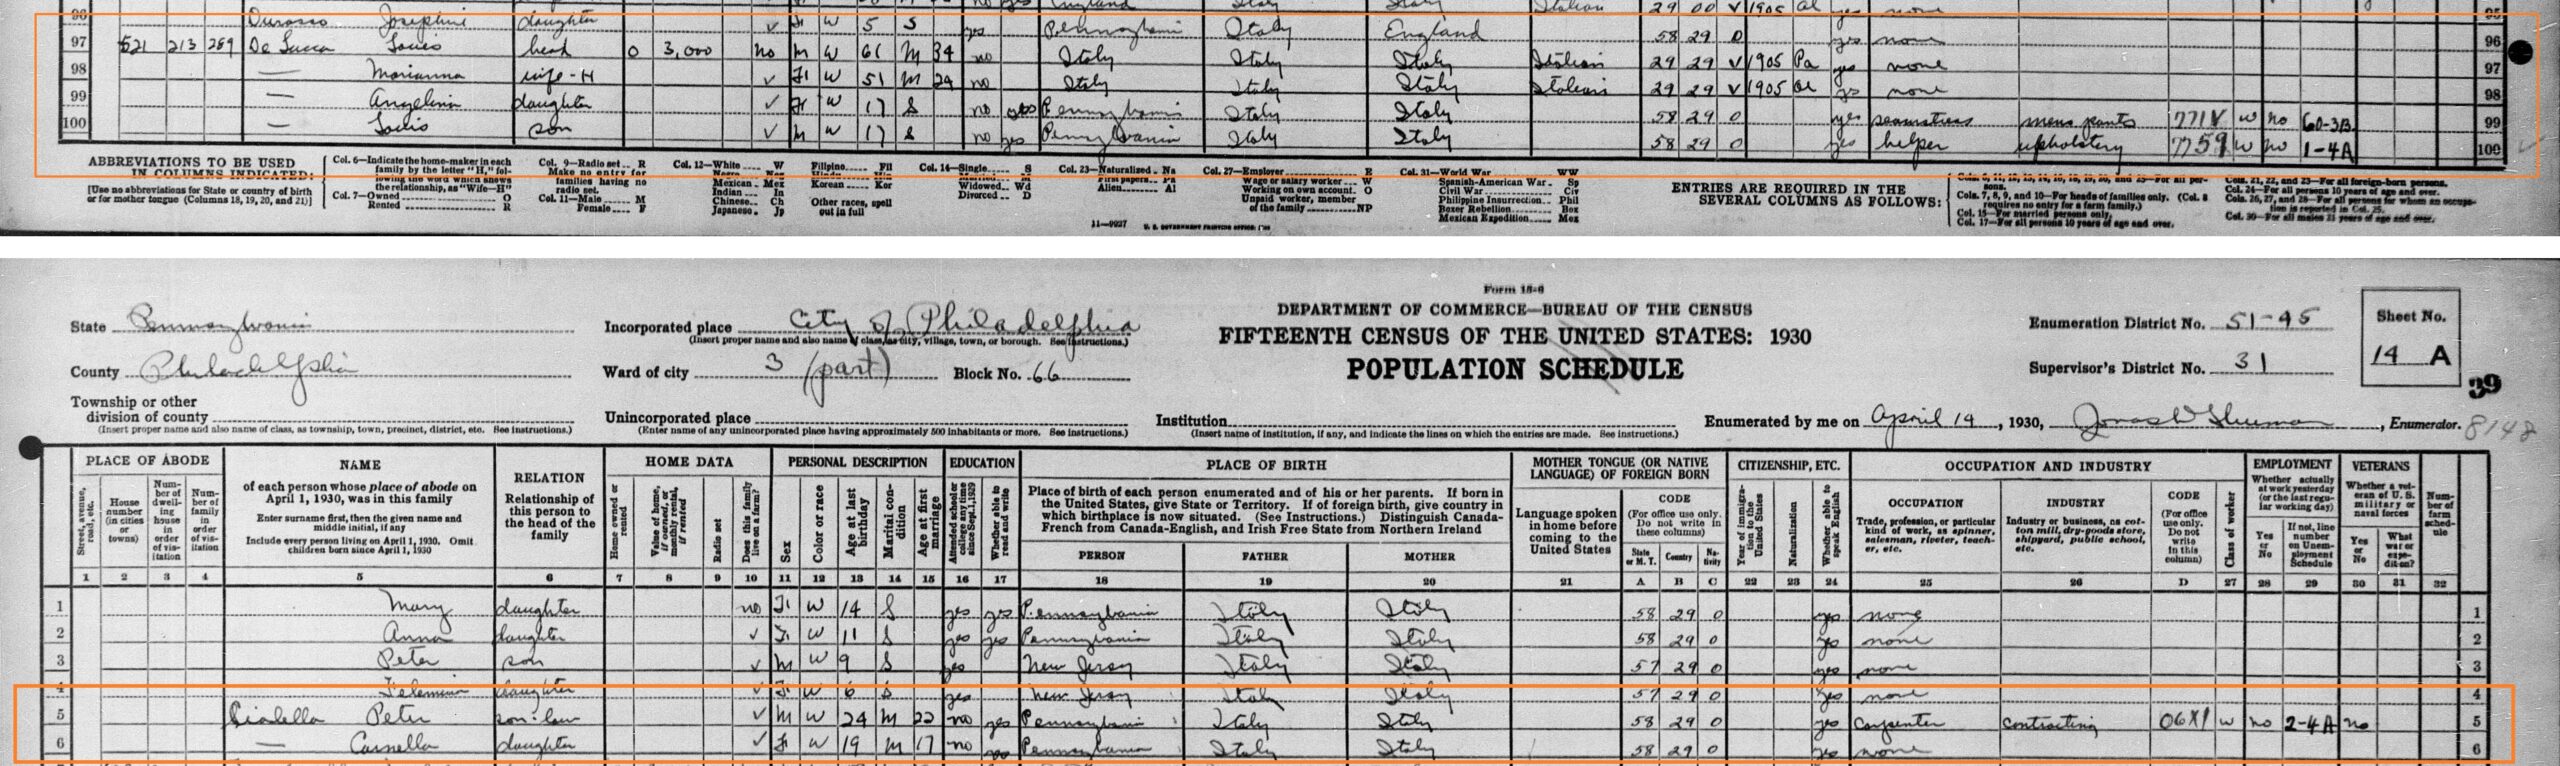 96 Durosso Josephine daughter ✓ F W 5 S yes Pennsylvania Italy England 58 29 0 yes none 96
97 521 213 289 De Lucca Louis head O 3,000 no M W 61 M 34 no Italy Italy Italy Italian 29 29 V 1905 Pa yes none 97
98 — Marianna wife-H ✓ F W 51 M 24 no Italy Italy Italy Italian 29 29 V 1905 Al yes none 98
99 — Angelina daughter ✓ F W 17 S no yes Pennsylvania Italy Italy 58 29 0 yes seamstress mens pants 771V W no 60-3B 99
100 — Louis son ✓ M W 17 S no yes Pennsylvania Italy Italy 58 29 0 yes helper upholstery 7759 W no 1-4A 100
ABBREVIATIONS TO BE USED
IN COLUMNS INDICATED:
[Use no abbreviations for State or country of birth
or for mother tongue (Columns 18, 19, 20, and 21)]
Col. 6—Indicate the home-maker in each
family by the letter "H," fol-
lowing the word which shows
the relationship, as "Wife—H"
Col. 7—Owned O
Rented R
Col. 9—Radio set R
Make no entry for
families having no
radio set.
Col. 11—Male M
Female F
Col. 12—White W
Mexican Mex
Indian In
Chinese Ch
Japanese Jp
Filipino Fil
Korean Kor
Other races, spell
out in full
Col. 14—Single S
Widowed Wd
Divorced D
Col. 23—Naturalized Na
First papers Pa
Alien Al
Col. 27—Employer E
Wage or salary worker W
Working on own account O
Unpaid worker, member
of the family NP
Col. 31—World War WW
Spanish-American War Sp
Civil War Civ
Philippine Insurrection Phil
Boxer Rebellion Box
Mexican Expedition Mex
ENTRIES ARE REQUIRED IN THE
SEVERAL COLUMNS AS FOLLOWS:
Cols. 7, 8, 9, and 10—For heads of families only. (Col. 8
requires no entry for a farm family.)
Col. 15—For married persons only.
Col. 17—For all persons 10 years of age and over.
Cols. 21, 22, and 23—For all foreign-born persons.
Col. 24—For all persons 10 years of age and over.
Cols. 26, 27, and 28—For all persons for whom an occupa-
tion is reported in Col. 25.
Col. 30—For all males 21 years of age and over.
11—9927 U. S. GOVERNMENT PRINTING OFFICE
Form 15-6
DEPARTMENT OF COMMERCE—BUREAU OF THE CENSUS
FIFTEENTH CENSUS OF THE UNITED STATES: 1930
POPULATION SCHEDULE
State Pennsylvania
County Philadelphia
Township or other
division of county
(Insert proper name and also name of class, as township, town, precinct, district, etc. See instructions.)
Incorporated place City of Philadelphia
(Insert proper name and also name of class, as city, village, town, or borough. See instructions.)
Ward of city 3 (part) Block No. 66
Unincorporated place
(Enter name of any unincorporated place having approximately 500 inhabitants or more. See instructions.)
Institution
(Insert name of institution, if any, and indicate the lines on which the entries are made. See instructions.)
Enumeration District No. 51-95
Supervisor's District No. 31
Sheet No.
14 A
39
Enumerated by me on April 14, 1930, Enumerator. 8148
PLACE OF ABODE
Street, avenue, road, etc.
House number (in cities or towns)
Number of dwelling house in order of visitation
Number of family in order of visitation
NAME
of each person whose place of abode on
April 1, 1930, was in this family
Enter surname first, then the given name and
middle initial, if any
Include every person living on April 1, 1930. Omit
children born since April 1, 1930
RELATION
Relationship of
this person to
the head of the
family
HOME DATA
Home owned or rented
Value of home, if owned, or monthly rental, if rented
Radio set
Does this family live on a farm?
PERSONAL DESCRIPTION
Sex
Color or race
Age at last birthday
Marital condition
Age at first marriage
EDUCATION
Attended school or college any time since Sept. 1, 1929
Whether able to read and write
PLACE OF BIRTH
Place of birth of each person enumerated and of his or her parents. If born in
the United States, give State or Territory. If of foreign birth, give country in
which birthplace is now situated. (See Instructions.) Distinguish Canada-
French from Canada-English, and Irish Free State from Northern Ireland
PERSON FATHER MOTHER
MOTHER TONGUE (OR NATIVE
LANGUAGE) OF FOREIGN BORN
Language spoken
in home before
coming to the
United States
CODE
(For office use only.
Do not write in
these columns)
State or M. T. Country Nativity
CITIZENSHIP, ETC.
Year of immigration to the United States
Naturalization
Whether able to speak English
OCCUPATION AND INDUSTRY
OCCUPATION
Trade, profession, or particular
kind of work, as spinner,
salesman, riveter, teach-
er, etc.
INDUSTRY
Industry or business, as cot-
ton mill, dry-goods store,
shipyard, public school,
etc.
CODE
(For office
use only.
Do not
write
in this
column)
Class of worker
EMPLOYMENT
Whether actually
at work yesterday
(or the last regu-
lar working day)
Yes or No
If not, line number on Unemployment Schedule
VETERANS
Whether a vet-
eran of U. S.
military or
naval forces
Yes or No
What war or expedition?
Number of farm schedule
1 2 3 4 5 6 7 8 9 10 11 12 13 14 15 16 17 18 19 20 21 A B C 22 23 24 25 26 D 27 28 29 30 31 32
1 Mary daughter no F W 14 S yes yes Pennsylvania Italy Italy 58 29 0 yes none 1
2 Anna daughter ✓ F W 11 S yes yes Pennsylvania Italy Italy 58 29 0 yes none 2
3 Peter son ✓ M W 9 S yes New Jersey Italy Italy 57 29 0 yes none 3
4 daughter ✓ F W 6 S yes New Jersey Italy Italy 57 29 0 yes none 4
5 Cialella Peter son-law ✓ M W 24 M 22 no yes Pennsylvania Italy Italy 58 29 0 yes carpenter contracting 06X1 W no 2-4A no 5
6 — Carmella daughter ✓ F W 19 M 17 no Pennsylvania Italy Italy 58 29 0 yes none 6